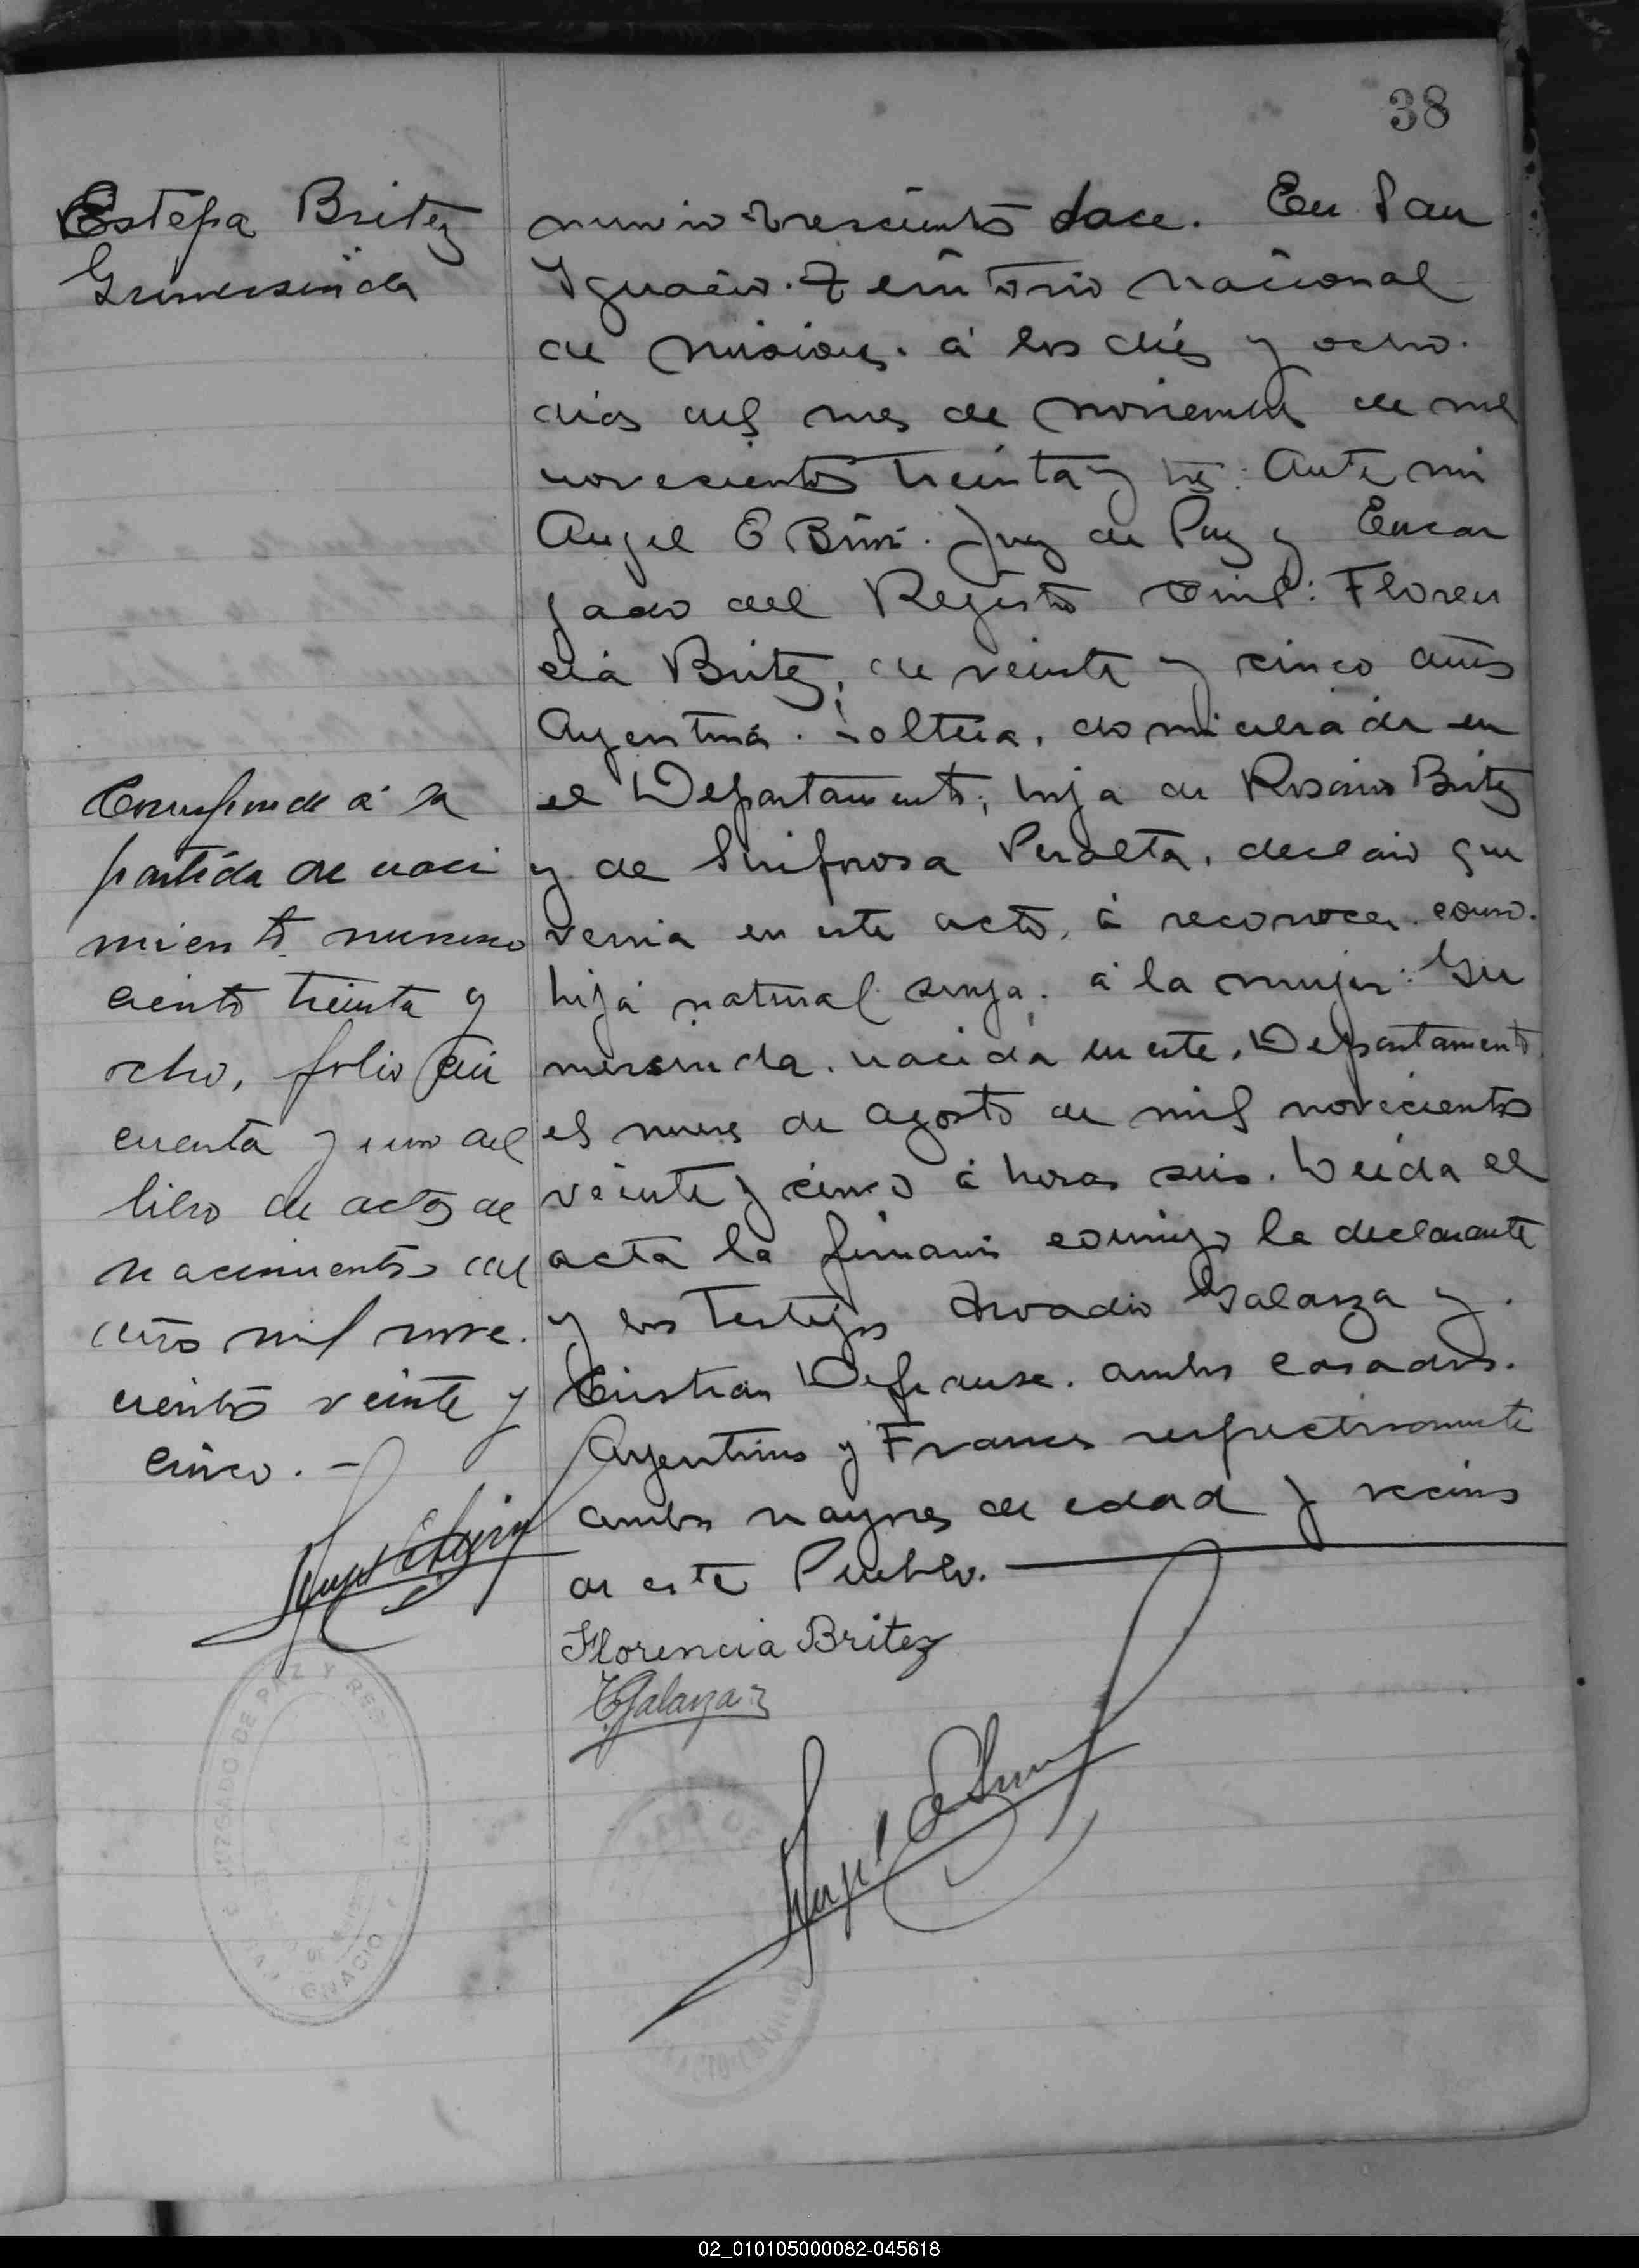 38
Estepa Britez
Gumersinda
numero trescientos doce. En San
Ygnacio. Territorio nacional
de Misiones. á los diés y ocho.
dias del mes de noviembre de mil
novecientos treinta y tres: Ante mi
Angel E. Juez de Paz y Encar
gado del Registro Civil: Floren
cia Britez, de veinte y cinco años
Argentina. Soltera, domiciliada en
el Departamento, hija de Rosario Britez
y de Sinforosa Peralta, declaró que
venia en este acto, á reconocer como.
hija natural suya. á la mujer: Gu
mersinda. nacida en este, Departamento
el nueve de agosto de mil novecientos
veinte y cinco á horas seis. Leida el
acta la firmaron conmigo la declarante
y los testigos Galarza y.
Cristian ambos casados.
Argentino y Frances respectivamente
ambos mayores de edad y vecinos
de este Pueblo.
Corresponde á la
partida de naci
miento numero
ciento treinta y
ocho, folio cin
cuenta y uno del
libro de actas de
nacimientos del
año mil nove.
cientos veinte y
cinco. -
Florencia Britez
Galarza
JUZGADO DE PAZ Y
SAN IGNACIO
02_010105000082-045618